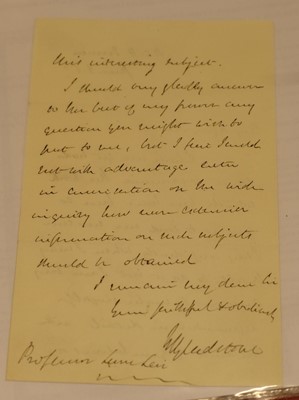 this interesting subject.
I should very gladly answer
to the best of my power any
question you might wish to
put to me, but I fear I could
not with advantage enter
in conversation on the wide
inquiry how more extensive
information on such subjects
should be obtained
I remain my dear Sir
Your faithful & obedient
WEGladstone
Professor Leone Levi